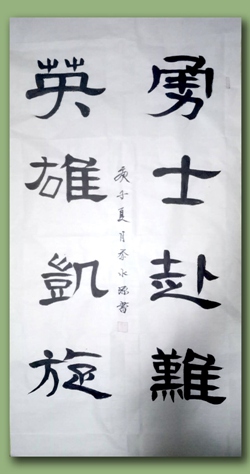 勇士赴難
英雄凱旋
庚子夏月永書